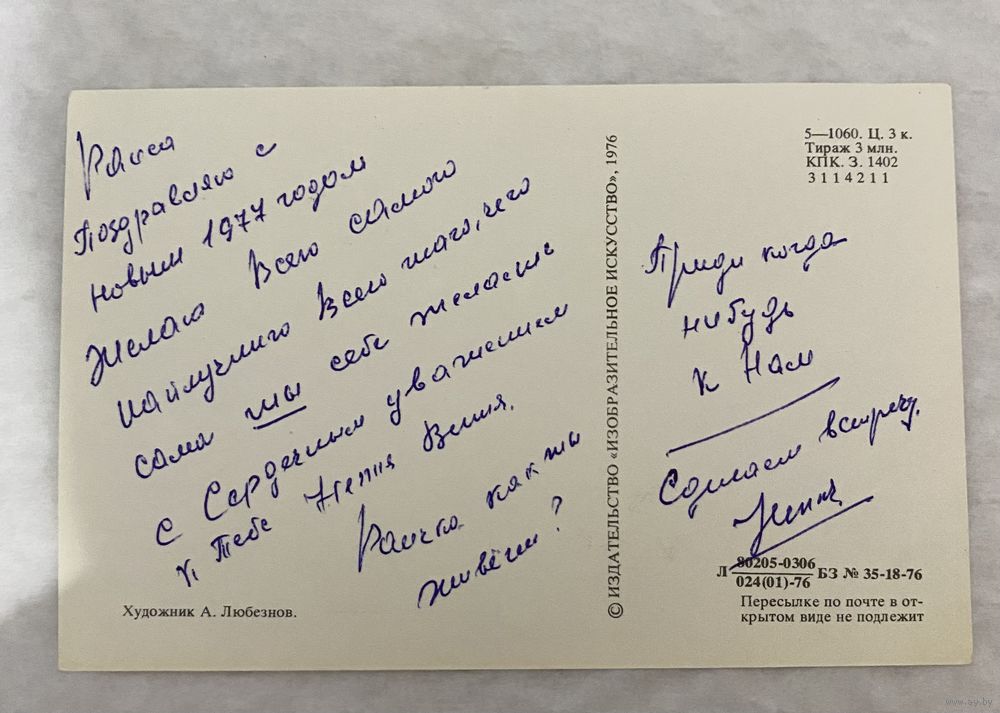 Раиса
Поздравляю с
новым 1977 годом
Желаю Всего самого
наилучшего Всего того, чего
сама ты себе желаешь
с Сердечным уважением
к тебе Неття Витя.
Раичка как ты
живёшь?
Приди когда
нибудь
к Нам
Сделаем встречу.
Художник А. Любезнов.
© ИЗДАТЕЛЬСТВО «ИЗОБРАЗИТЕЛЬНОЕ ИСКУССТВО», 1976
5—1060. Ц. 3 к.
Тираж 3 млн.
КПК. З. 1402
3114211
Л 80205-0306
024(01)-76 БЗ № 35-18-76
Пересылке по почте в от-
крытом виде не подлежит
www.ay.by